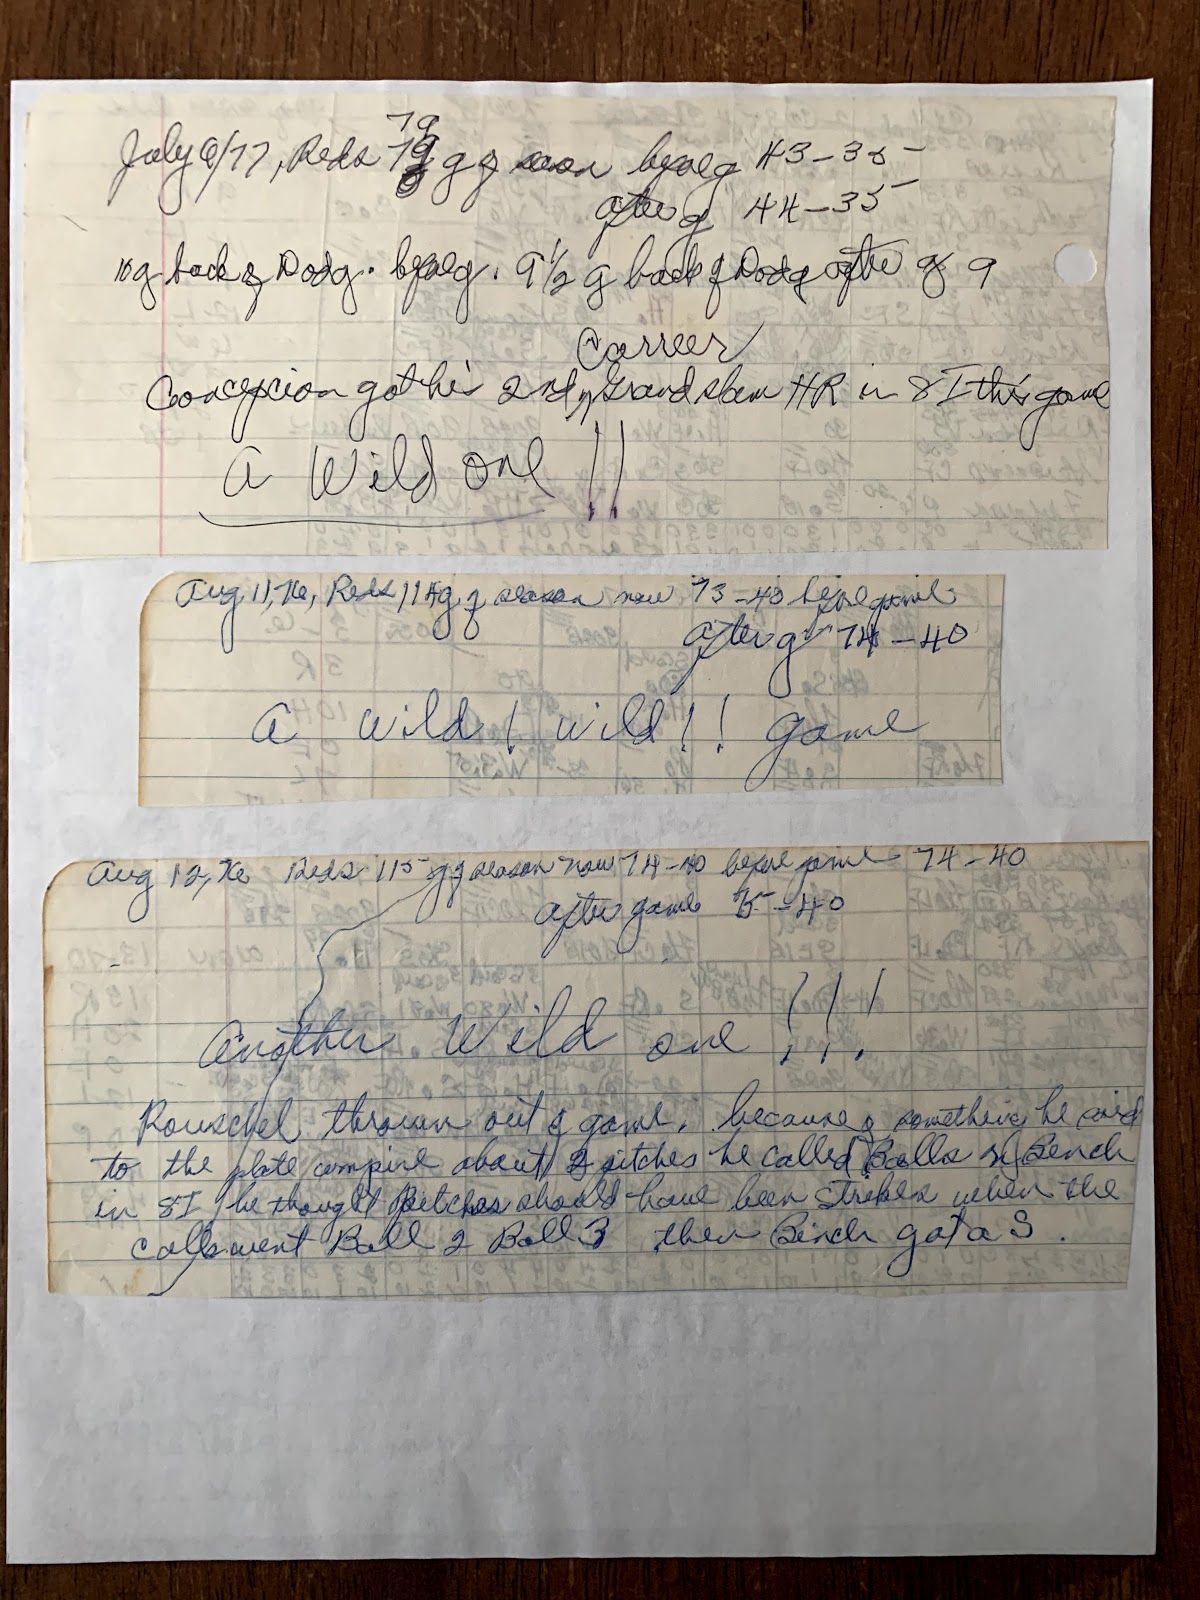 79
July 6/77, Reds 79 g of season before g 43-35
after g 44-35
10 g back of Dodg. before g. 9 1/2 g back of Dodg after g 9
Carreer
Concepcion got his 2nd Grand slam HR in 8 I this game
A Wild one !!
Aug 11, 76, Reds 114 g of season now 73-40 before game
After g 74-40
A wild! wild!! game
Aug 12, 76 Reds 115 g of season now 74-40 before game 74-40
after game 75-40
Another Wild one !!!
Rouschel thrown out of game. because of something he said
to the plate umpire about 2 pitches he called Balls on Bench
in 8 I he thought Pitches should have been strikes when the
calls went Ball 2 Ball 3 then Bench got a S.